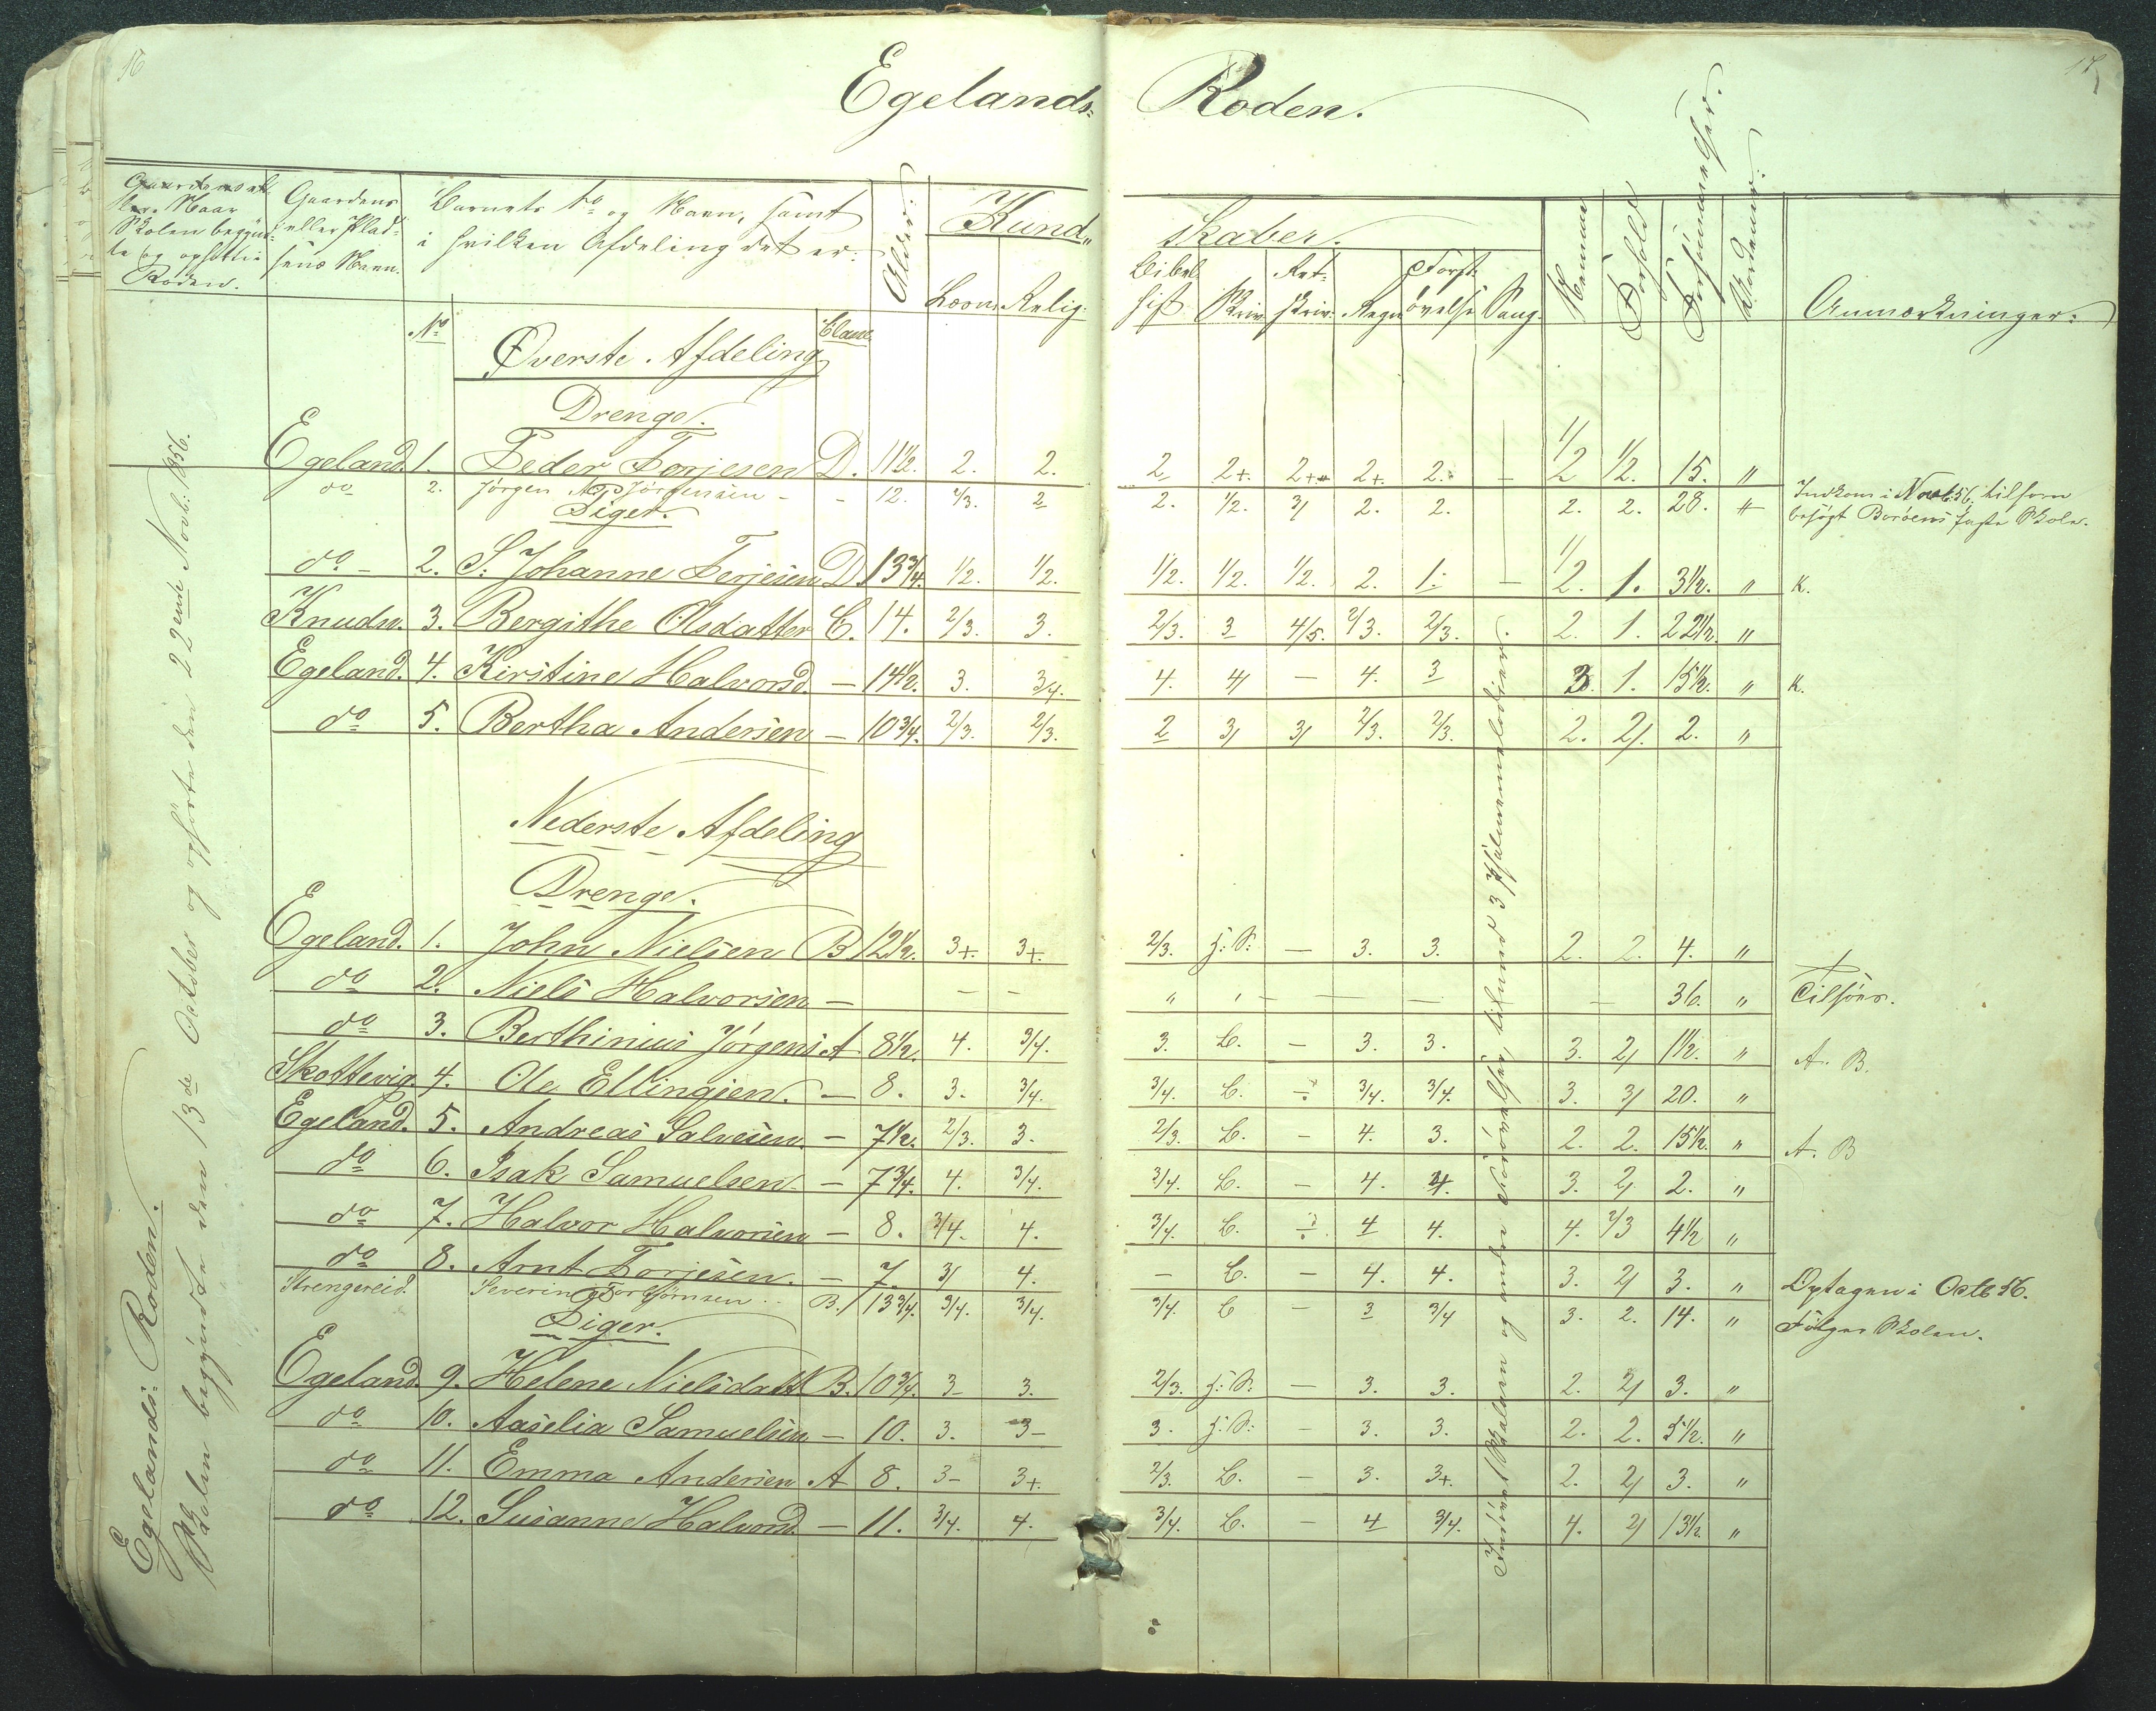 16
17
Egelands- Roden.
Skolen begyn-
te og ophørte i
Roden.
Gaardens
eller Plad-
sens Navn.
Barnets No og Navn, samt
i hvilken Afdeling det er.
Alder.
Kund-
skaber.
Læsn. Relig.
Bibel
hist. Skriv. Ret-
skriv. Regn. Forst.
øvelse Sang.
Nemme
Forhold
Forsømmelser.
Anmærkninger.
No
Øverste Afdeling
Classe
Drenge.
Egeland. 1. Peder Terjesen D. 11 1/2. 2. 2. 2 2+ 2+ 2+ 2. - 1/2 1/2. 15. "
do 2. Jørgen N. Jörgensen - - 12. 2/3. 2 2. 1/2. 3/ 2. 2. 2. 2. 28. " Indkom i Novb. 56, tilforn
besøgt Boröens faste Skole.
Piger.
do - 2. S. Johanne Terjesen D. 13 3/4. 1/2. 1/2. 1/2. 1/2. 1/2. 2. 1. - 1/2. 1. 3 1/2. " K.
Knuds. 3. Bergithe Olsdatter C. 14. 2/3. 3. 2/3. 3 4/5. 2/3. 2/3. 2. 1. 22 1/2. "
Egeland. 4. Kirstine Halvorsd. - 14 1/2. 3. 3/4. 4. 4/ - 4. 3 3. 1. 15 1/2. " K.
do 5. Bertha Andersen - 10 3/4. 2/3. 2/3. 2 3/ 3/ 2/3. 2/3. 2. 2/. 2. "
Nederste Afdeling
Drenge.
Egeland. 1. John Nielsen B 12 1/2. 3+. 3+. 2/3. f: S: - 3. 3. 2. 2. 4. "
do 2. Niels Halvorsen - - - " " - - - - 36. " Tilsöes.
do 3. Berthinius Jörgens. A 8 1/2. 4. 3/4. 3. B. - 3. 3. 3. 2/ 1 1/2. " A. B.
Skottevig. 4. Ole Ellingsen. - 8. 3. 3/4. 3/4. B. ÷ 3/4. 3/4. 3. 3/ 20. "
Egeland. 5. Andreas Salvesen. - 7 1/2. 2/3. 3. 2/3. B. - 4. 3. 2. 2. 15 1/2. " A. B
do 6. Isak Samuelsen - 7 3/4. 4. 3/4. 3/4. B. - 4. 4. 3. 2/ 2. "
do 7. Halvor Halvorsen - 8. 3/4. 4. 3/4. B. ÷ 4 4. 4. 2/3 4 1/2 "
do 8. Arnt Terjesen. - 7. 3/ 4. - B. - 4. 4. 3. 2/ 3. " Optagen i Octb 56.
Strengereid. Severin Tor Törnsen B. 13 3/4. 3/4. 3/4. 3/4. B - 3 3/4 3. 2. 14. " Følger Skolen.
Piger.
Egeland 9. Helene Nielsdatt B. 10 3/4. 3- 3. 2/3. f: S: - 3. 3. 2. 2/ 3. "
do 10. Aaselia Samuelsen - 10. 3. 3- 3. f: S: - 3. 3. 2. 2. 5 1/2. "
do 11. Emma Andersen A 8. 3- 3+. 2/3. B. - 3. 3+. 2. 2/ 3. "
do 12. Susanne Halvorsd. - 11. 3/4. 4. 3/4. B. - 4 3/4. 4. 2/ 13 1/2. "
Egelands- Roden.
Skolen begyndte den 13de October og ophörte den 22ende Novb: 1856.